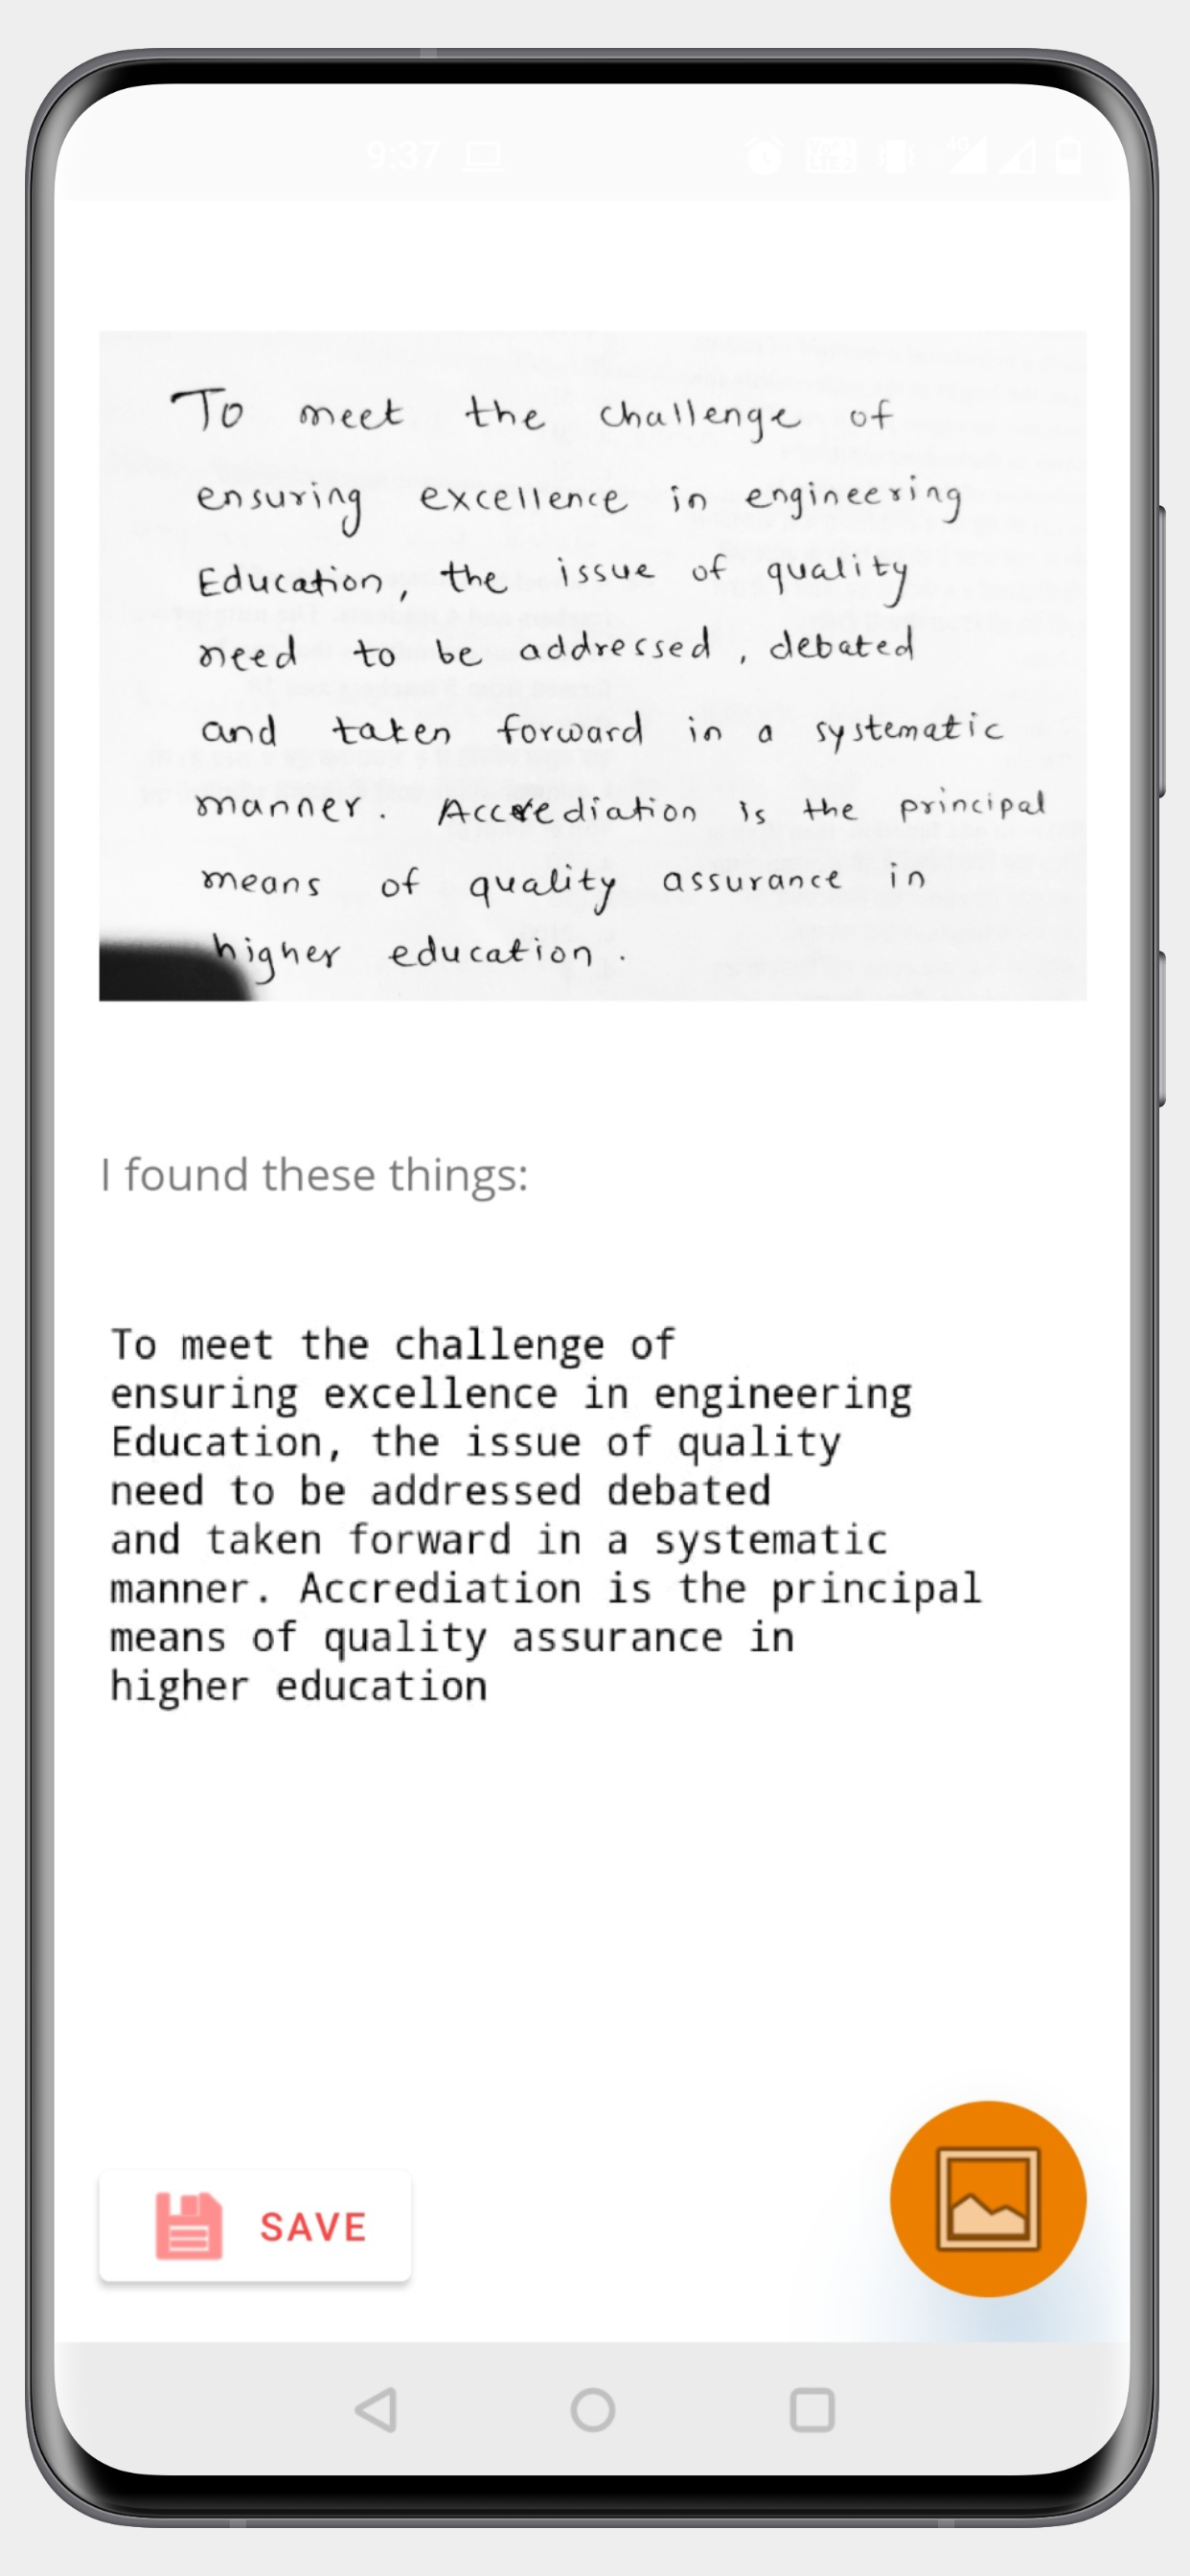 9:37
4G
To meet the challenge of
ensuring excellence in engineering
Education, the issue of quality
need to be addressed, debated
and taken forward in a systematic
manner. Accrediation is the principal
means of quality assurance in
higher education.
I found these things:
To meet the challenge of
ensuring excellence in engineering
Education, the issue of quality
need to be addressed debated
and taken forward in a systematic
manner. Accrediation is the principal
means of quality assurance in
higher education
SAVE